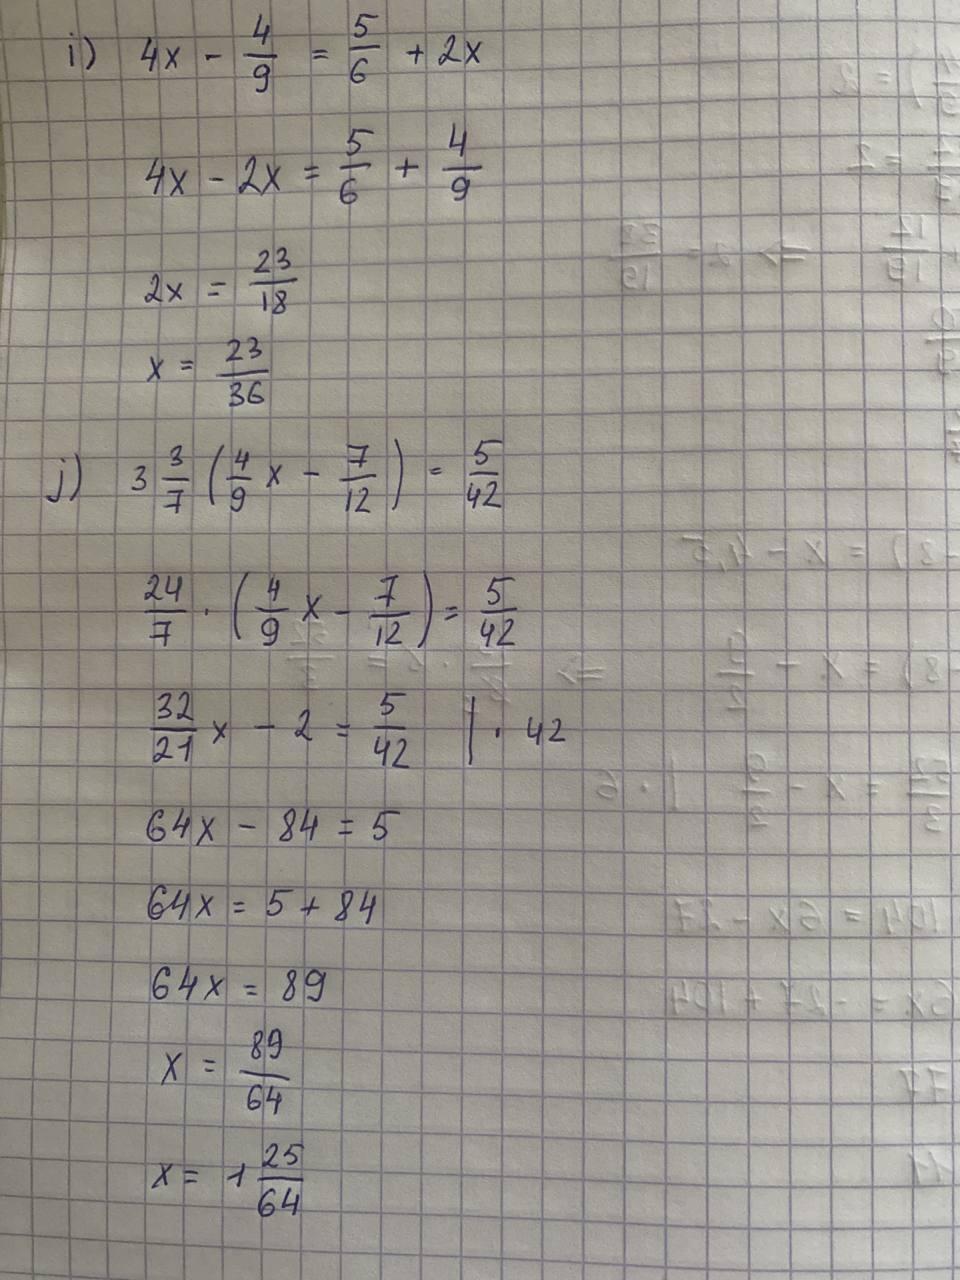 i) 4x - 4/9 = 5/6 + 2x
4x - 2x = 5/6 + 4/9
2x = 23/18
x = 23/36
j) 3 3/7 (4/9 x - 7/12) = 5/42
24/7 · (4/9 x - 7/12) = 5/42
32/21 x - 2 = 5/42 | · 42
64x - 84 = 5
64x = 5 + 84
64x = 89
x = 89/64
x = 1 25/64